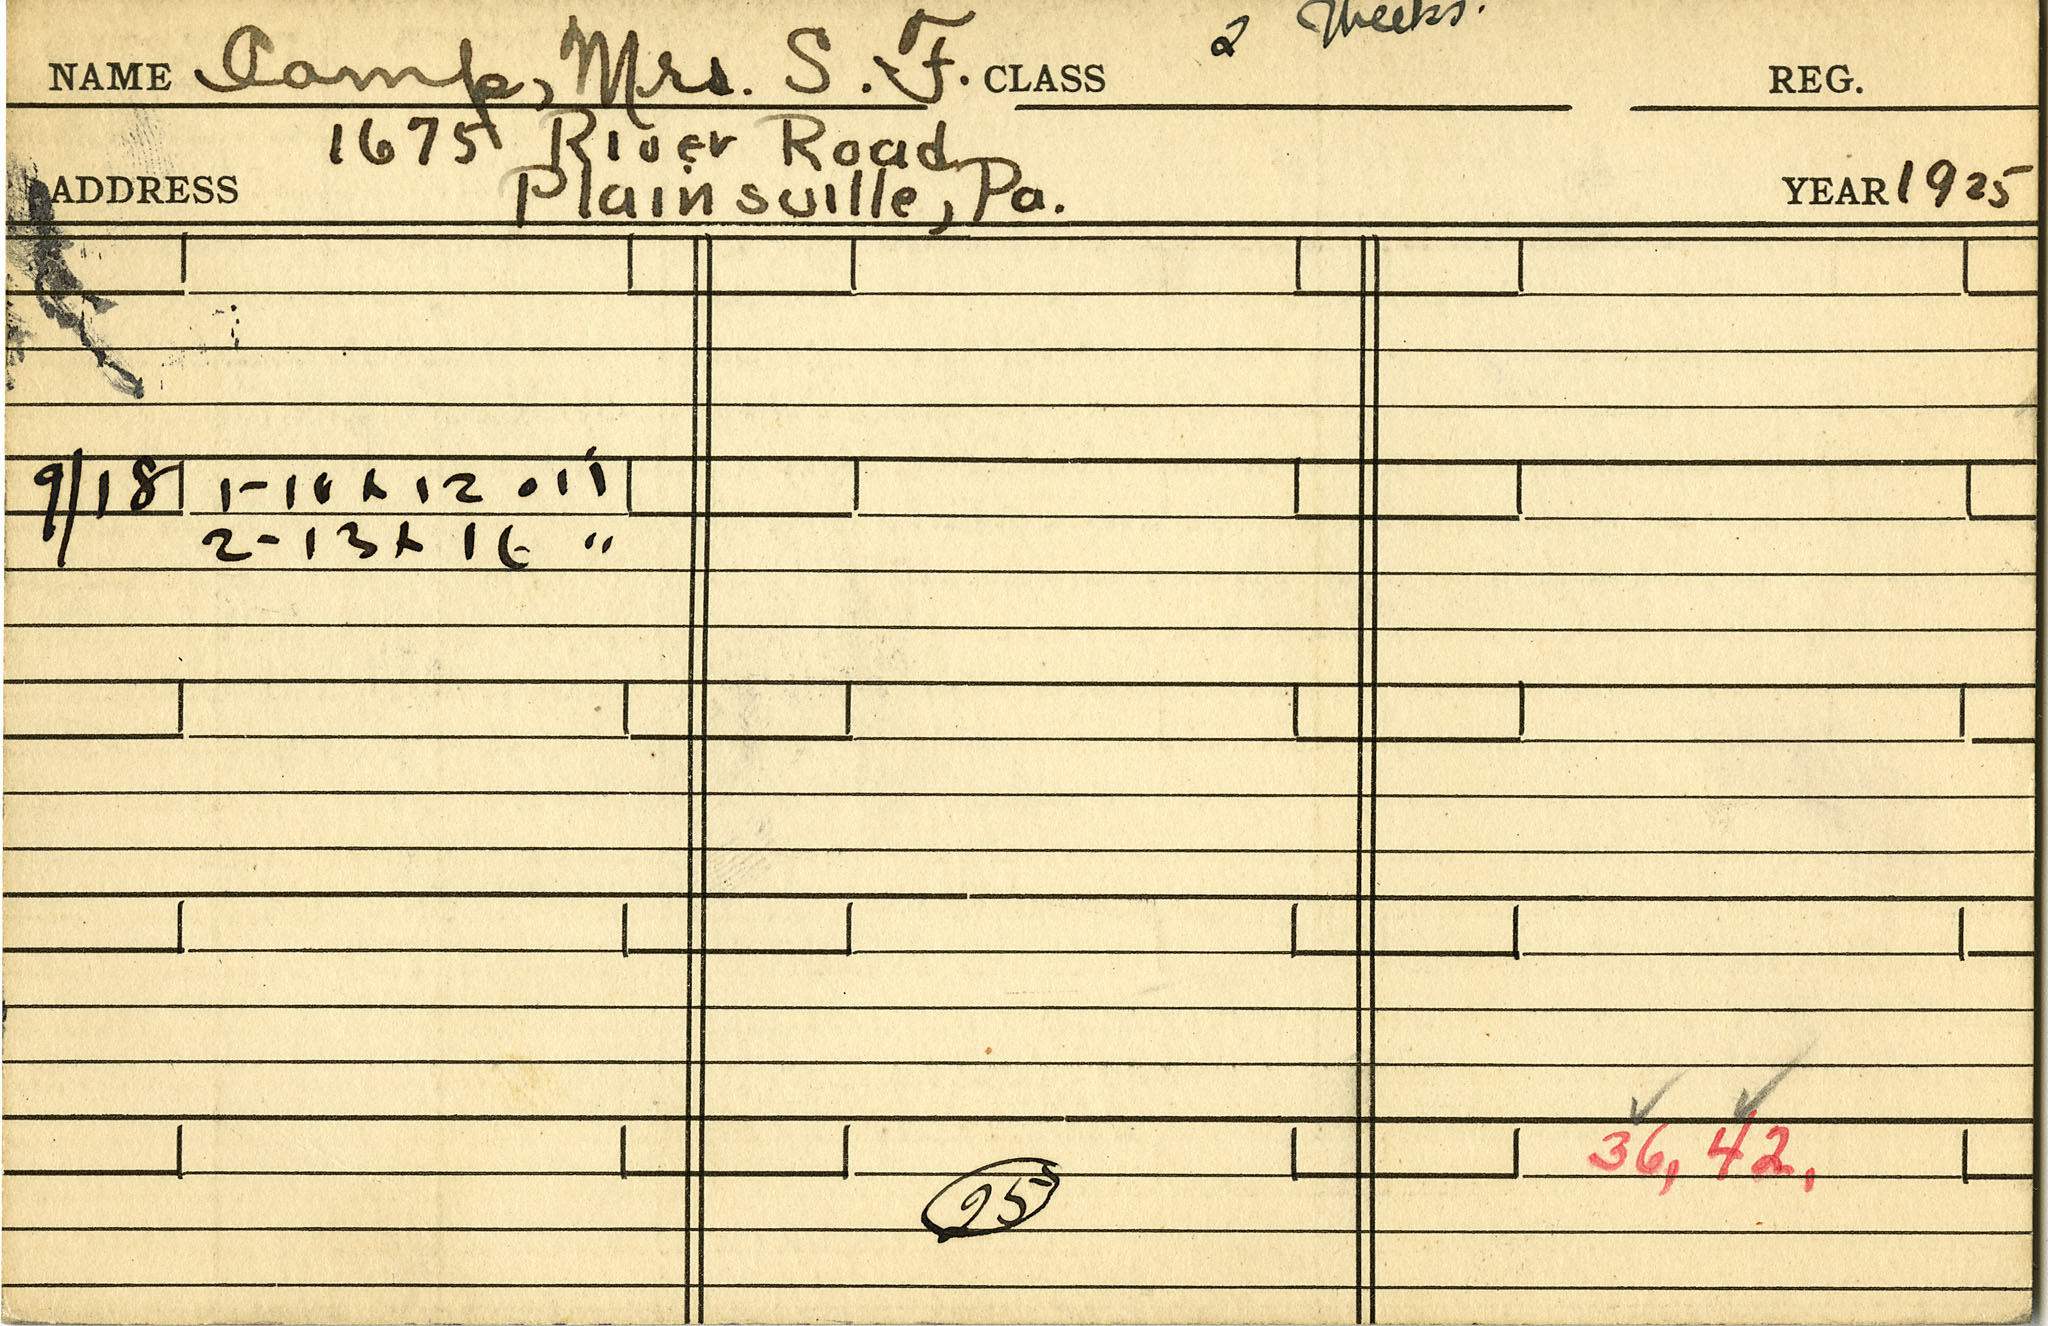 2 Weeks.
NAME Camp, Mrs. S. F. CLASS REG.
1675 River Road
ADDRESS Plainsville, Pa. YEAR 1925
9/18 1-10 x 12 oil
2-13 x 16 "
36, 42,
25